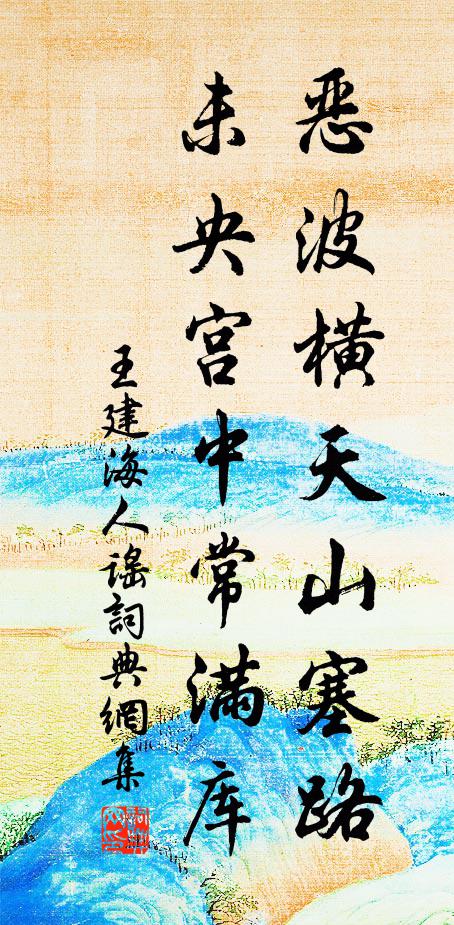 恶波橫天山塞路
未央宫中常满库
王建海人谣詞典網集